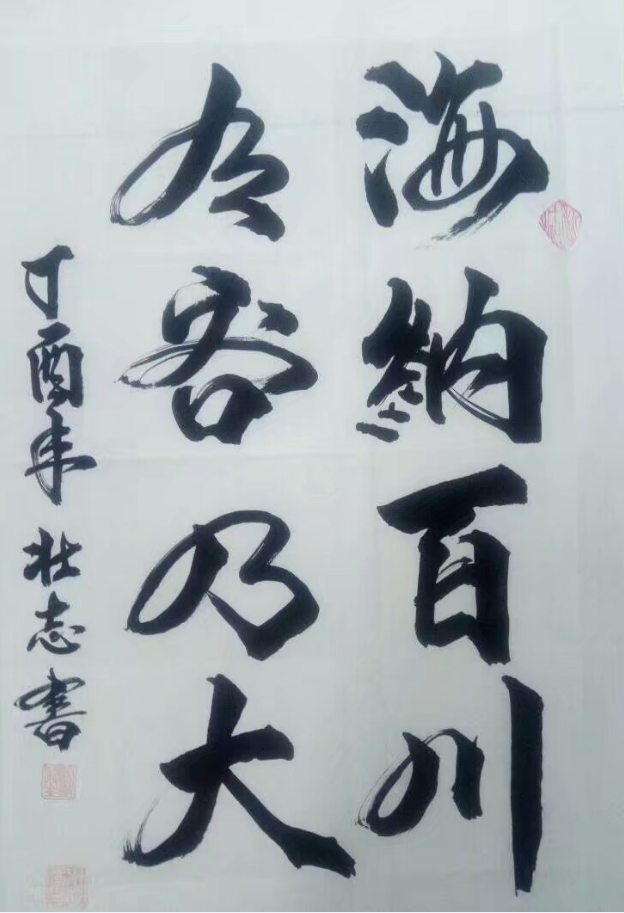 海納百川
有容乃大
丁酉年壮志書